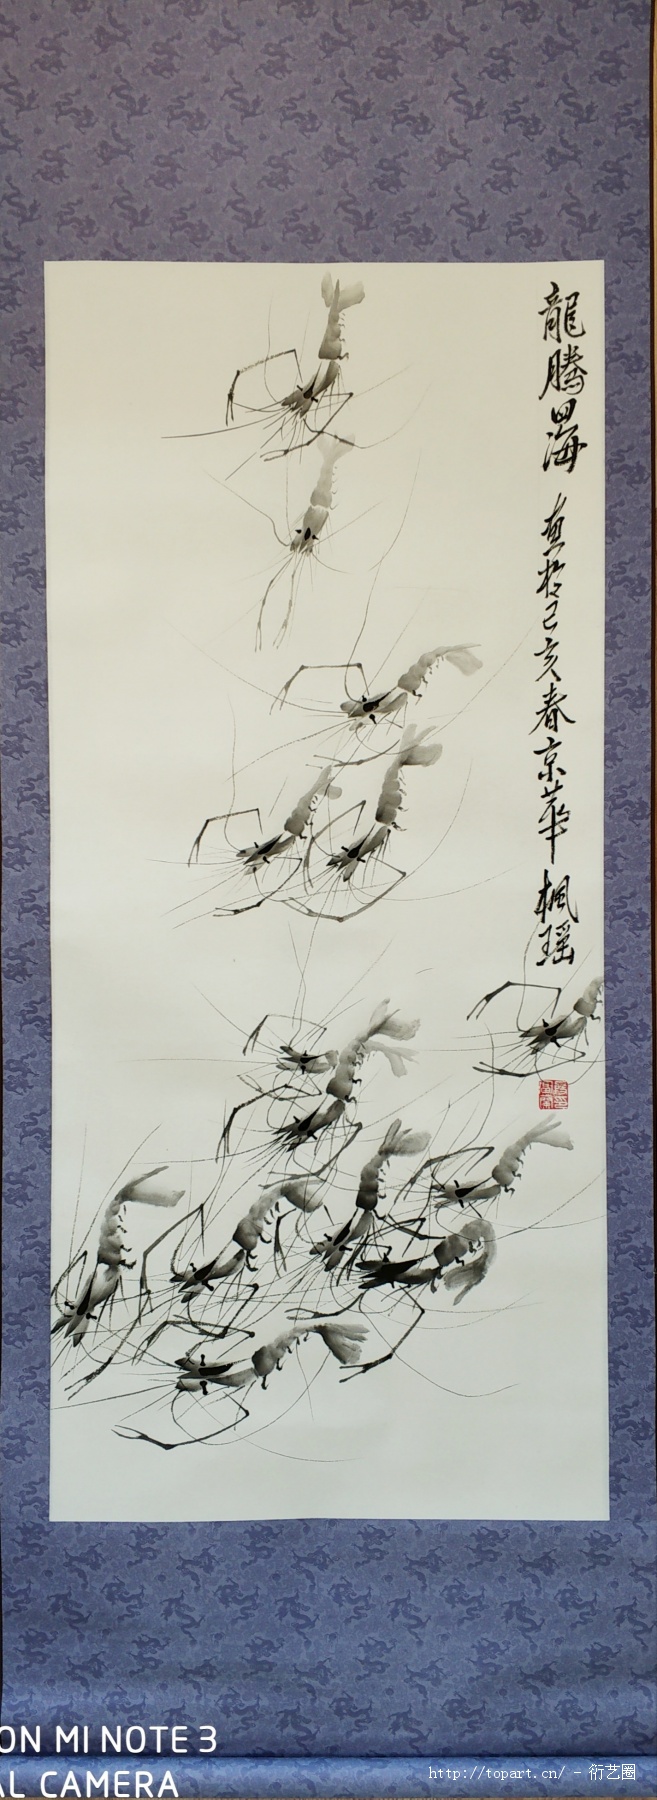 龍腾四海 直於己亥春京華 楓瑶
ON MI NOTE 3
AL CAMERA
http://topart.cn/ - 衍艺圈